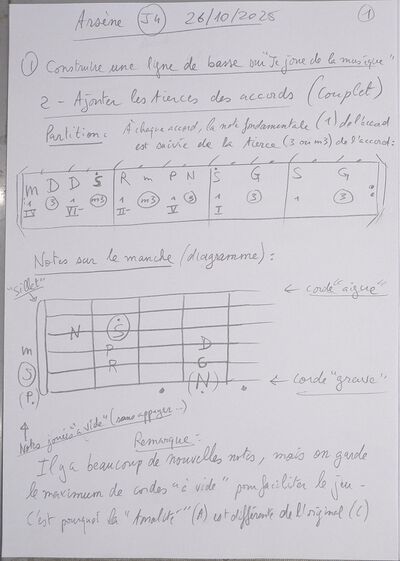 Arsène J4 26/10/2025 ①
① Construire une ligne de basse sur "Je joue de la musique"
2 - Ajouter les tierces des accords (couplet)
Partition : À chaque accord, la note fondamentale (1) de l'accord
est suivie de la tierce (3 ou m3) de l'accord :
m D D Ṡ R m P N Ṡ G S G
1 3 1 m3 1 m3 1 3 1 3 1 3
IV VI- II- V I
Notes sur le manche (diagramme) :
"sillet"
← corde "aigue"
N Ṡ
m P D
S R G
(P.) (N) ← corde "grave"
Notes jouées "à vide" (sans appuyer...)
Remarque :
Il y a beaucoup de nouvelles notes, mais on garde
le maximum de cordes "à vide" pour faciliter le jeu -
C'est pourquoi la "tonalité" (A) est différente de l'original (C)